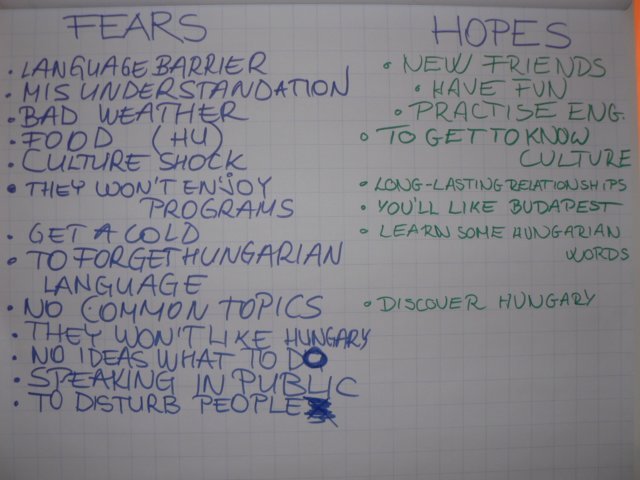 FEARS
• LANGUAGE BARRIER
• MISUNDERSTANDATION
• BAD WEATHER
• FOOD (HU)
• CULTURE SHOCK
• THEY WON'T ENJOY
PROGRAMS
• GET A COLD
• TO FORGET HUNGARIAN
LANGUAGE
• NO COMMON TOPICS
• THEY WON'T LIKE HUNGARY
• NO IDEAS WHAT TO DO
• SPEAKING IN PUBLIC
• TO DISTURB PEOPLE
HOPES
• NEW FRIENDS
• HAVE FUN
• PRACTISE ENG.
• TO GET TO KNOW
CULTURE
• LONG-LASTING RELATIONSHIPS
• YOU'LL LIKE BUDAPEST
• LEARN SOME HUNGARIAN
WORDS
• DISCOVER HUNGARY